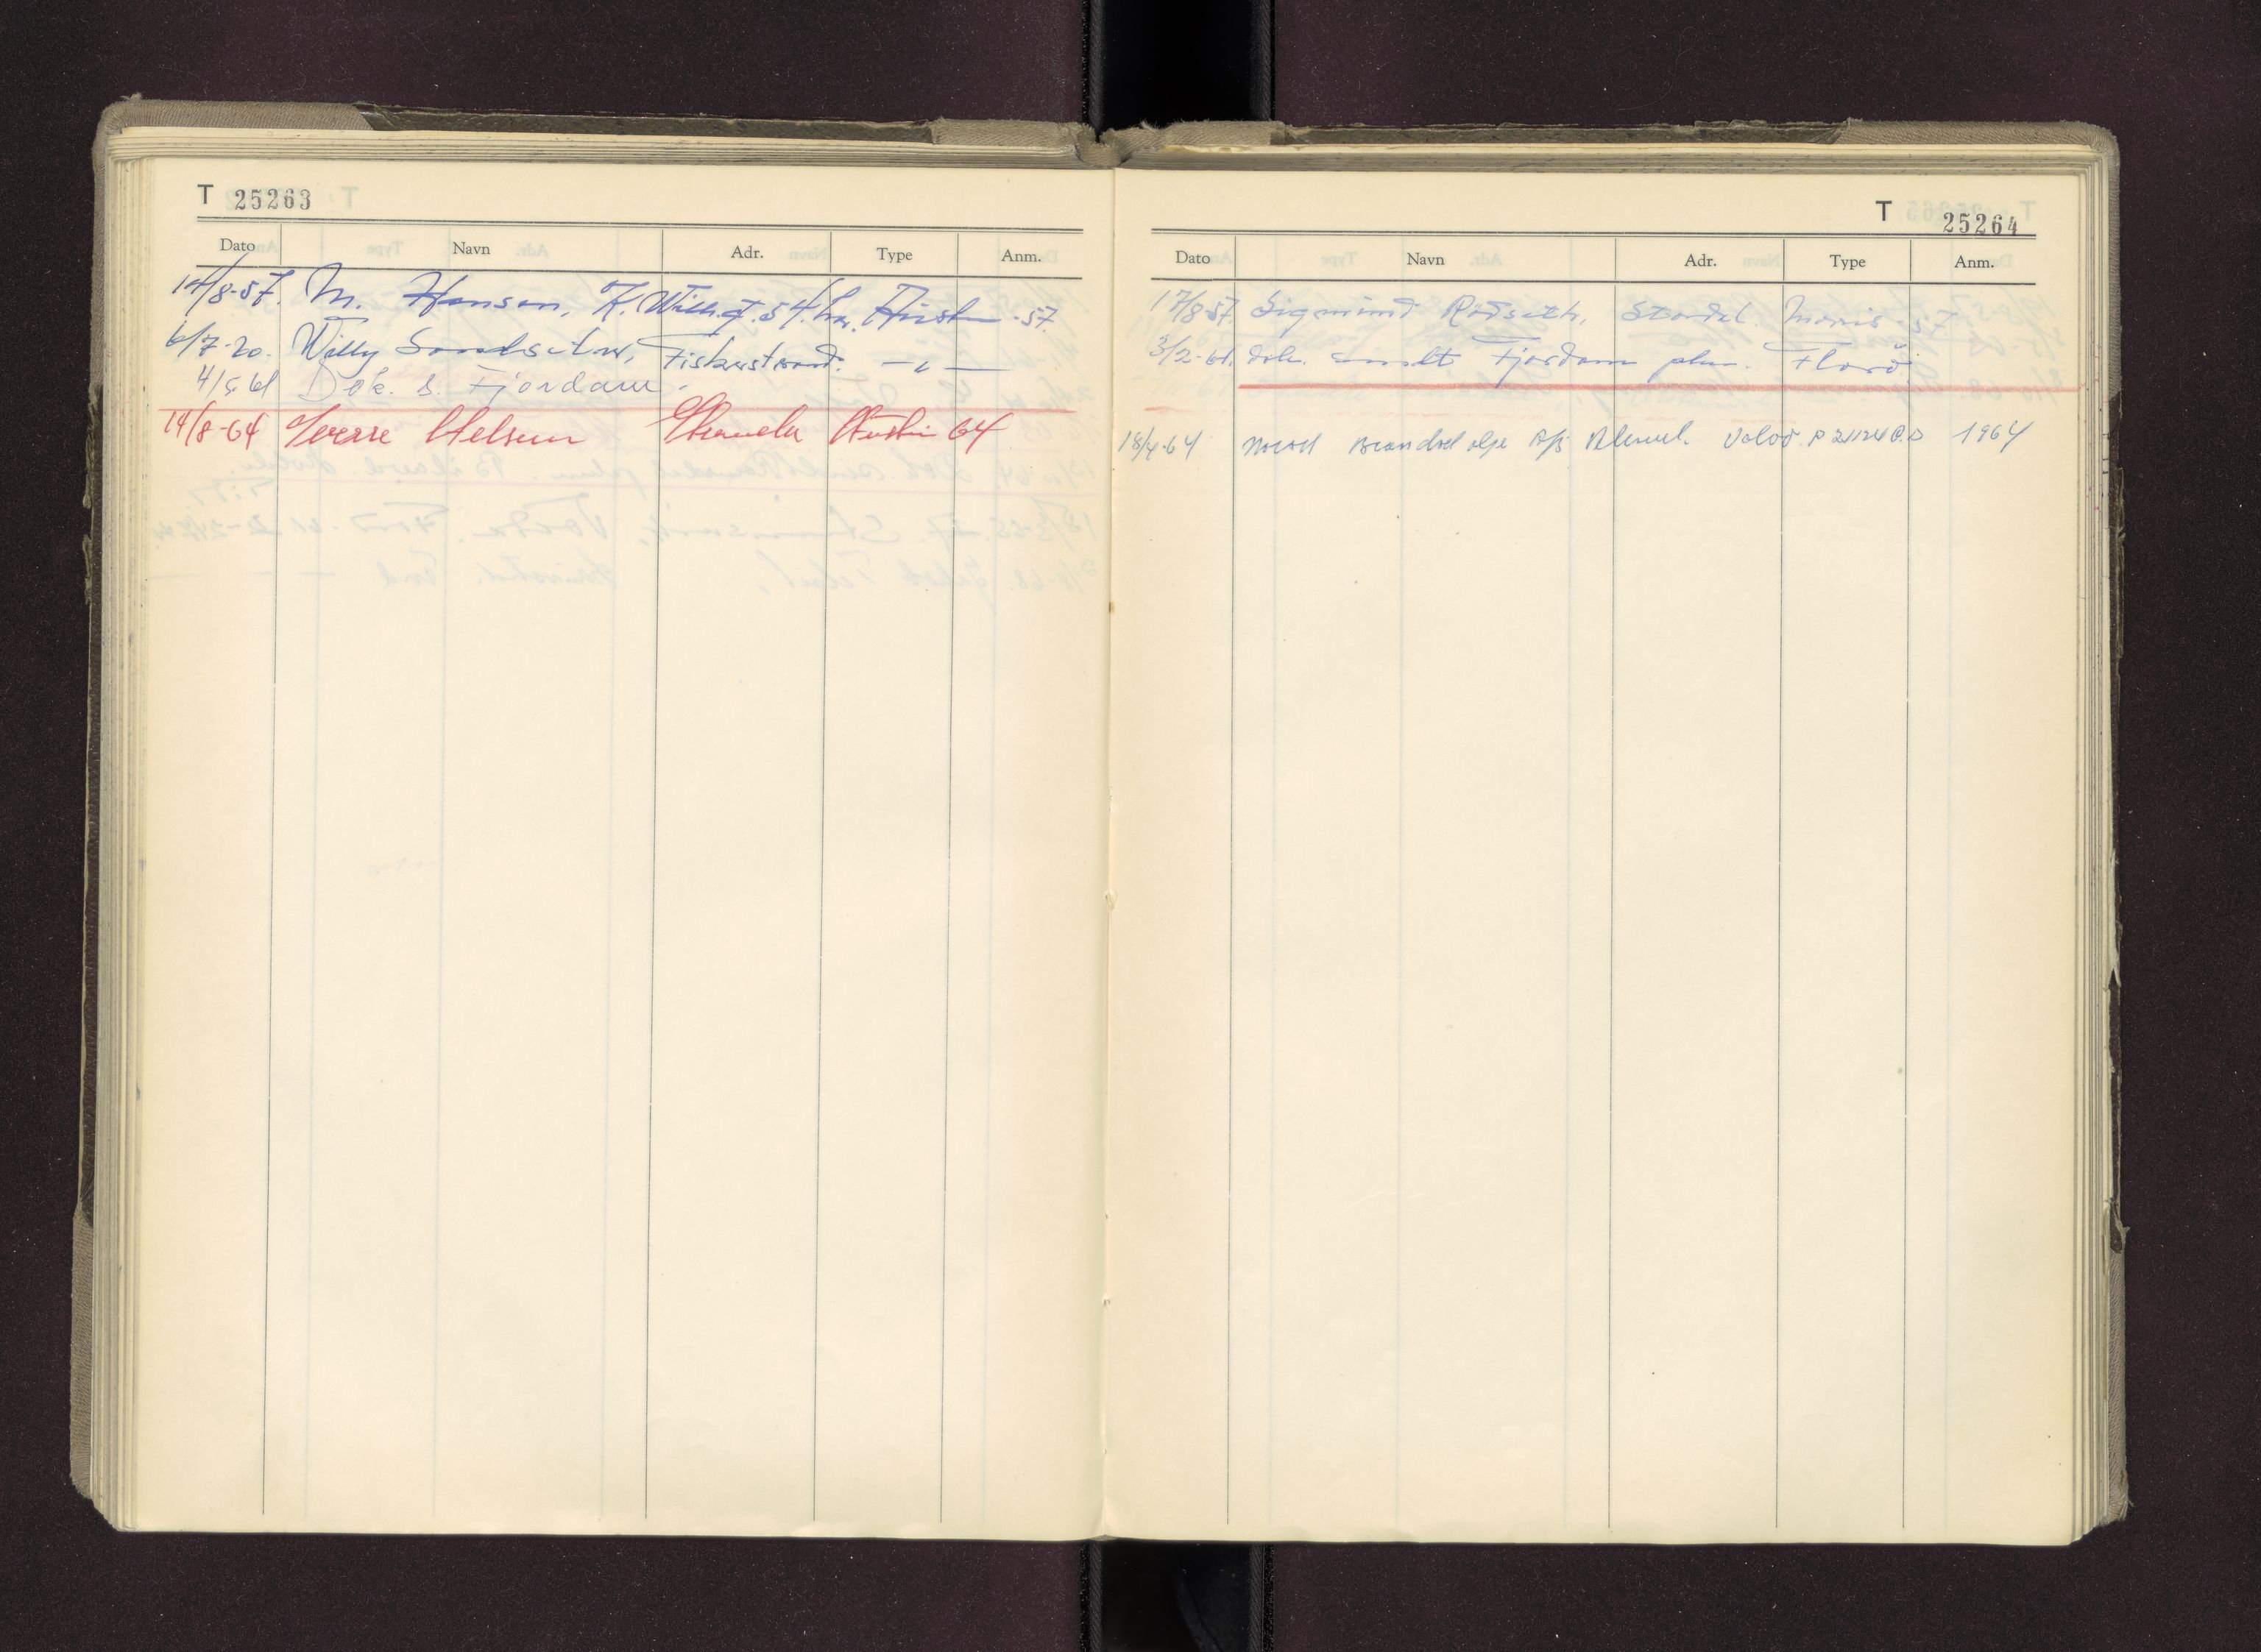 T 25263
Dato Navn Adr. Type Anm.
14/8-57. M. Hansen, K. Will. g. 54. Austin -57.
6/7-20. Willy Fiskerstrand. — " —
4/5 61 Dok. s. Fjordane.
14/8-64 Sverre Stranda Austin 64
T 25264
Dato Navn Adr. Type Anm.
17/8-57. Sigmund Rødseth, Stordal. Morris -57.
3/2-61. dok. sendt Fjordane pkm. Florø.
18/4-64 Norsk Brændselolje A/S Ålesund. Volvo P 21124 1964